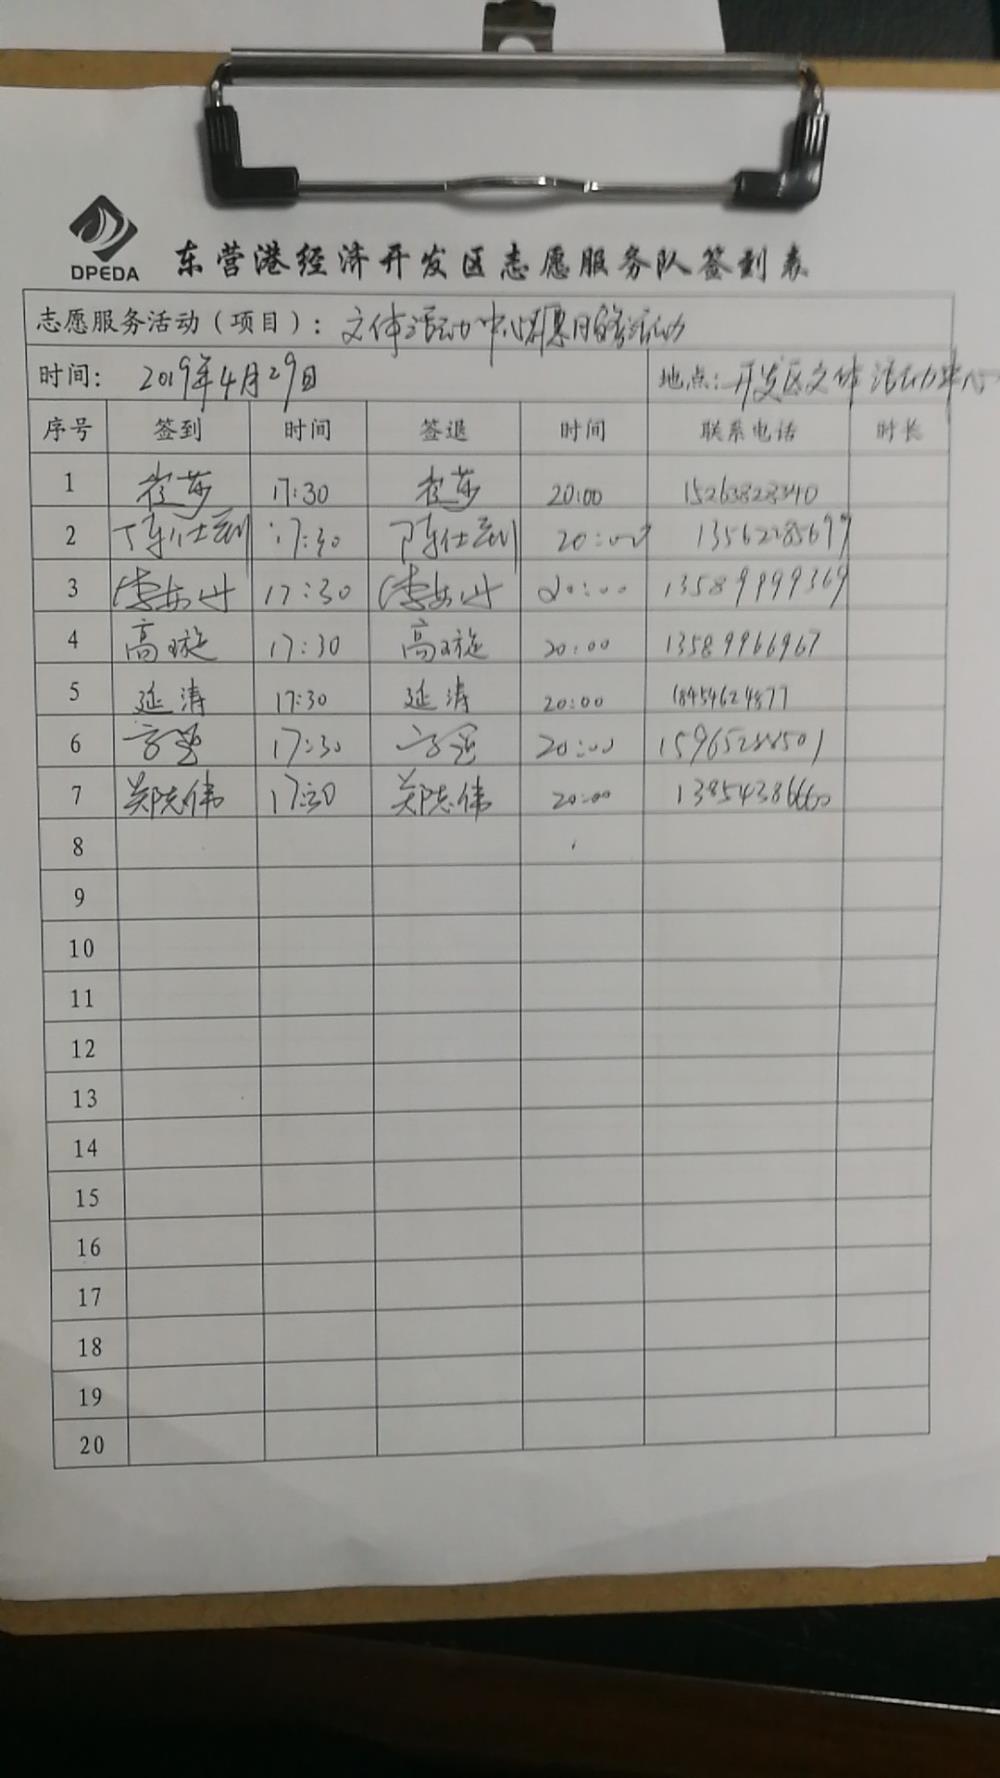 DPEDA
东营港经济开发区志愿服务队签到表
志愿服务活动（项目）：文体活动中心志愿服务活动
时间：2019年4月29日 地点：开发区文体活动中心
序号 签到 时间 签退 时间 联系电话 时长
1 崔莎 17:30 崔莎 20:00 15263828340
2 17:30 20:00
3 17:30 20:00 13589999369
4 高璇 17:30 高璇 20:00 13589966967
5 延涛 17:30 延涛 20:00 18454624877
6 17:30 20:00
7 郑志伟 17:30 郑志伟 20:00 13854386660
8
9
10
11
12
13
14
15
16
17
18
19
20